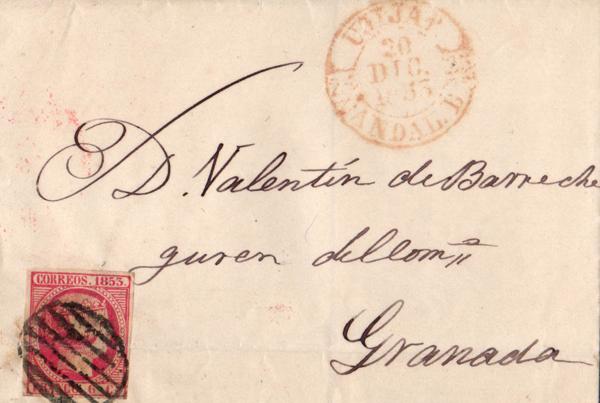 UJIJAR
20
DIC.
1853
ANDAL. B.
D. Valentín de Barreche
guren del Com.º
Granada
CORREOS. 1853